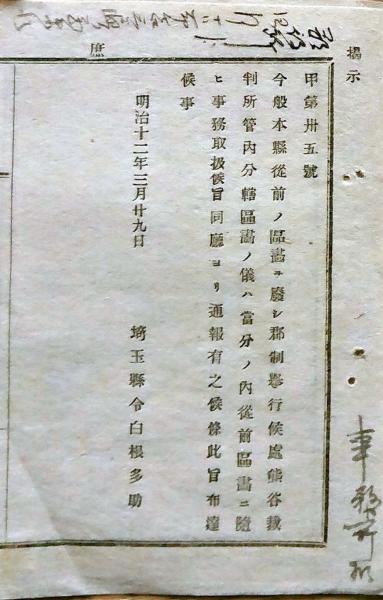 掲示
甲第卅五號
今般本縣從前ノ區畫ヲ廢シ郡制擧行候處熊谷裁
判所管内分轄區畫ノ儀ハ當分ノ内從前區畫ニ隨
ヒ事務取扱候旨同廳ヨリ通報有之候條此旨布達
候事
明治十二年三月廿九日
埼玉縣令白根多助
庶